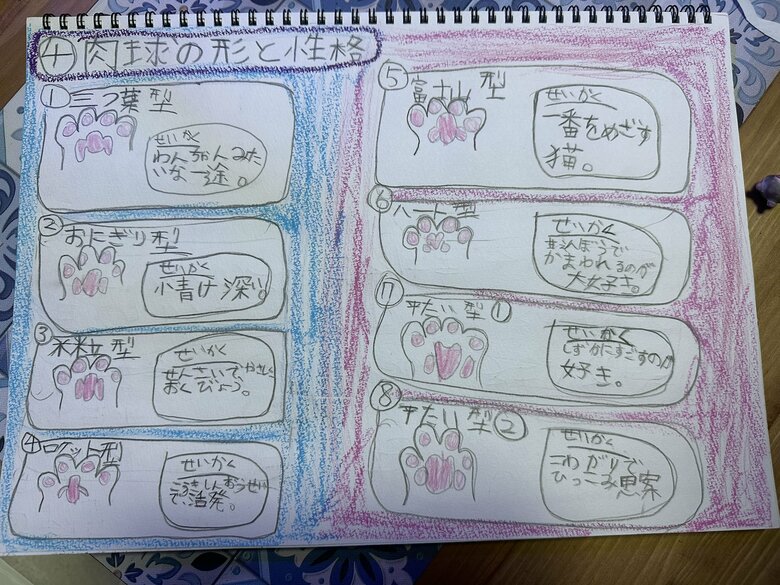 ④肉球の形と性格
①三つ葉型
せいかく
わんちゃんみた
いな一途。
②おにぎり型
せいかく
小青け深い。
③米粒型
せいかく
せんさいでやさしく
おくびょう。
④ロケット型
せいかく
こうきしんおうせい
で、活発。
⑤富士山型
せいかく
一番をめざす
猫。
⑥ハート型
せいかく
甘えんぼうで
かまわれるのが
大好き。
⑦平たい型①
せいかく
しずかにすごすのが
好き。
⑧平たい型②
せいかく
こわがりで
ひっこみ思案